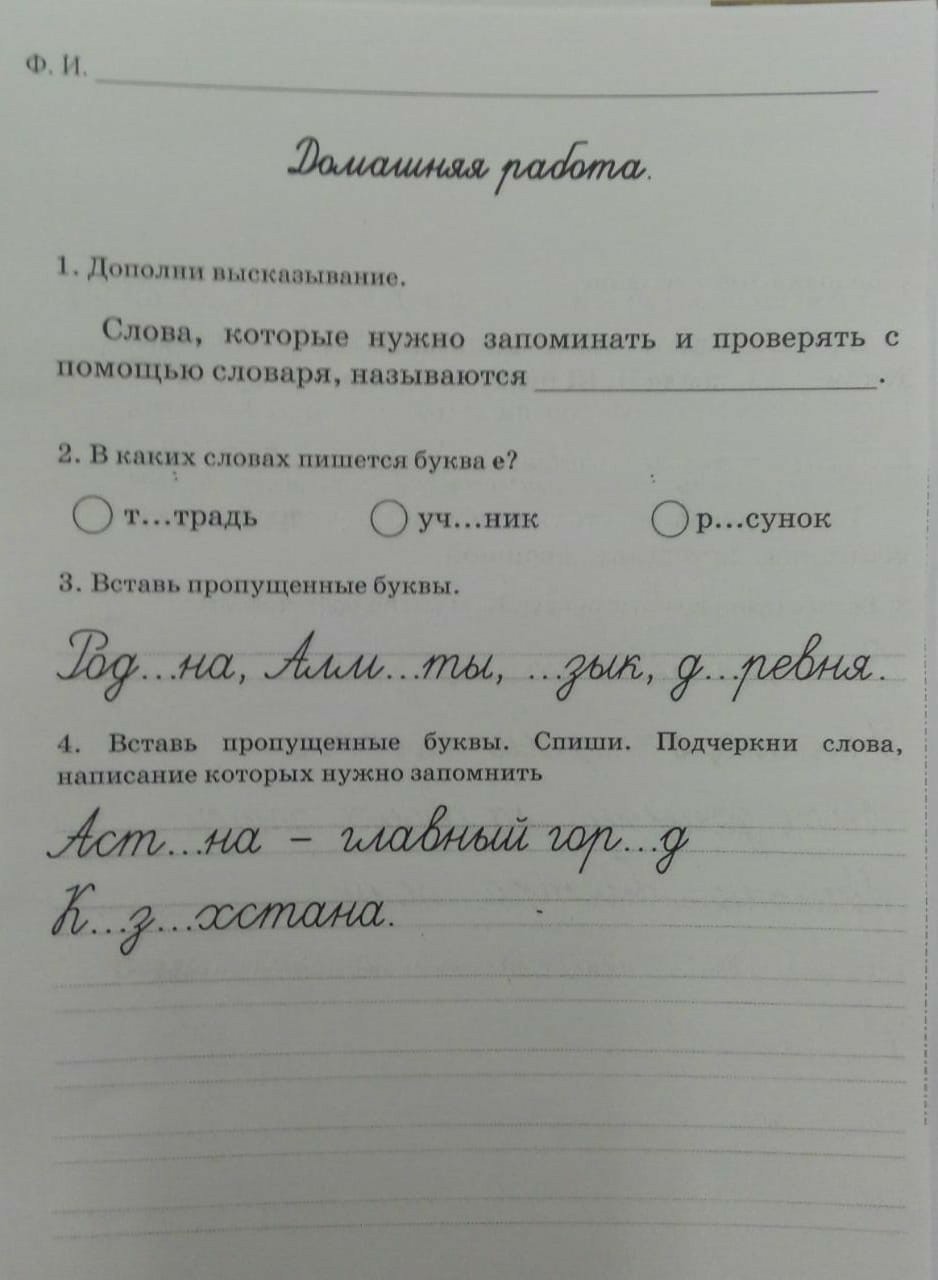 Ф. И.
Домашняя работа.
1. Дополни высказывание.
Слова, которые нужно запоминать и проверять с
помощью словаря, называются .
2. В каких словах пишется буква е?
т...традь уч...ник р...сунок
3. Вставь пропущенные буквы.
Род...на, Алм...ты, ...зык, д...ревня.
4. Вставь пропущенные буквы. Спиши. Подчеркни слова,
написание которых нужно запомнить
Аст...на – главный гор...д
К...з...хстана.